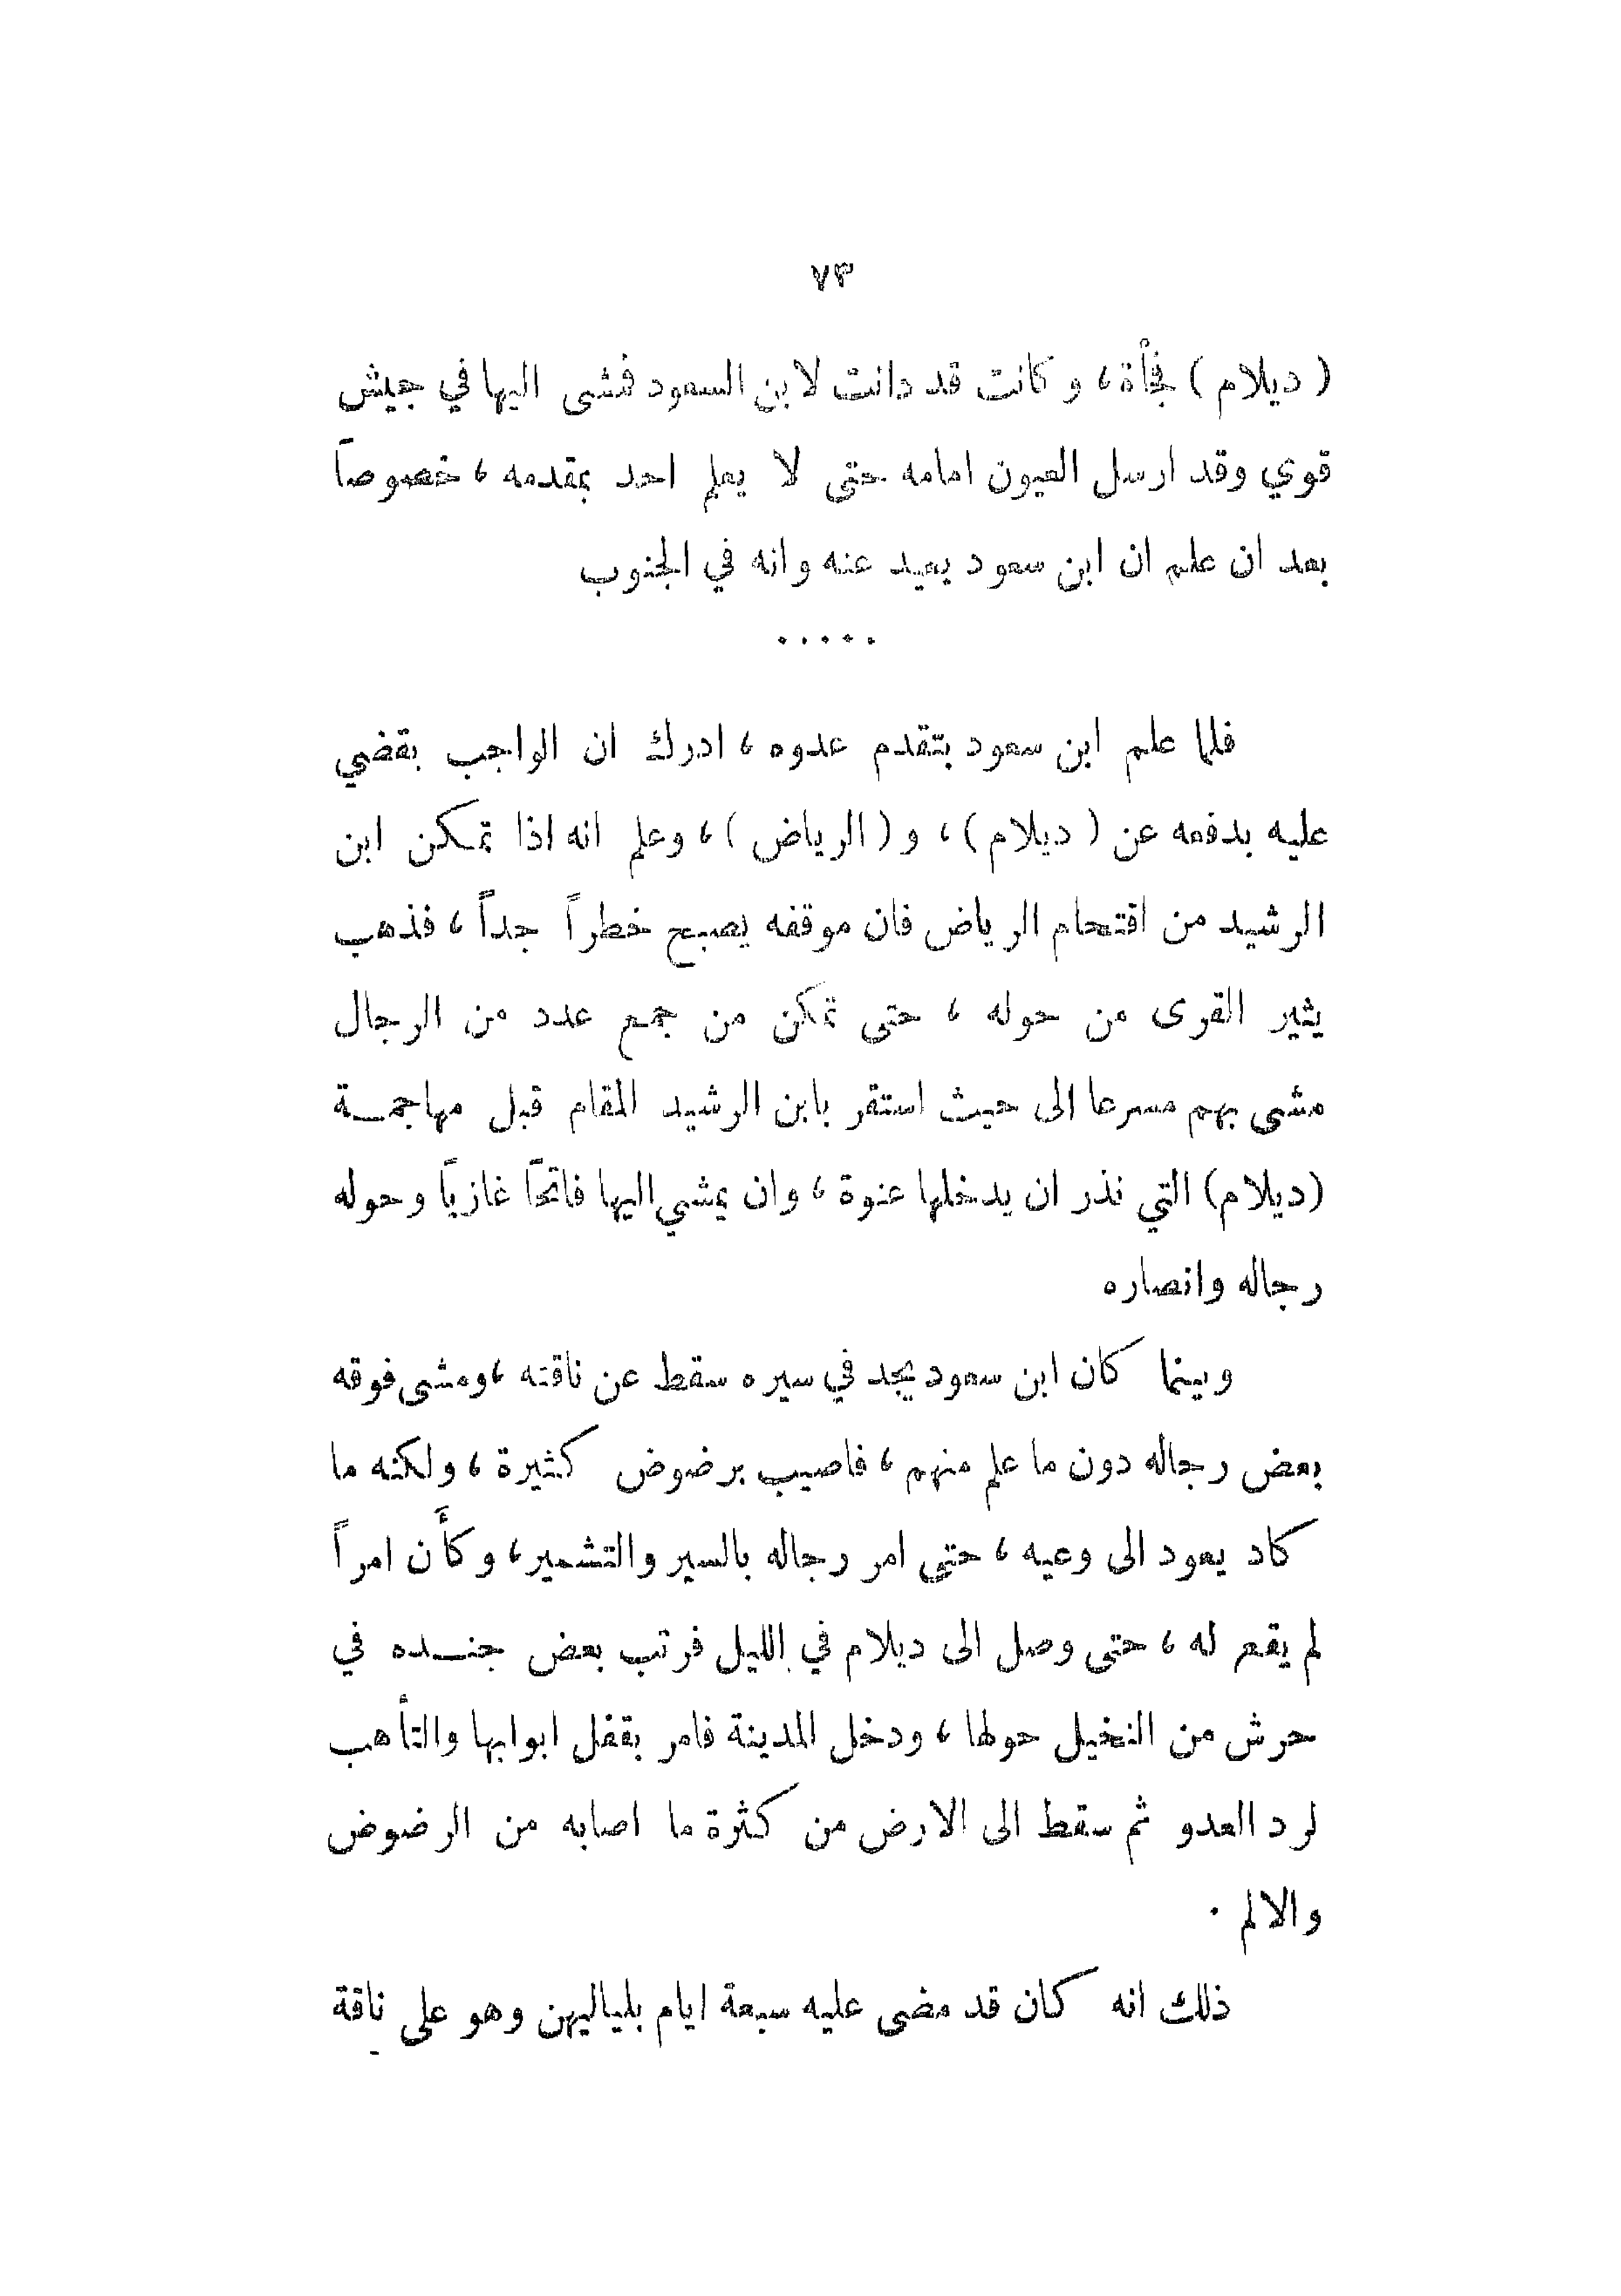 ٧٣
( ديلام ) فجأة ، و كانت قد دانت لابن السعود فمشى اليها في جيش
قوي وقد ارسل العيون امامه حتى لا يعلم احد بمقدمه ، خصوصاً
بعد ان علم ان ابن سعود بعيد عنه وانه في الجنوب
.....
فلما علم ابن سعود بتقدم عدوه ، ادرك ان الواجب بقضي
عليه بدفعه عن ( ديلام ) ، و ( الرياض ) ، وعلم انه اذا تمكن ابن
الرشيد من اقتحام الرياض فان موقفه يصبح خطراً جداً ، فذهب
يثير القرى من حوله ، حتى تمكن من جمع عدد من الرجال
مشى بهم مسرعا الى حيث استقر بابن الرشيد المقام قبل مهاجمة
(ديلام) التي نذر ان يدخلها عنوة ، وان يمشي اليها فاتحاً غازياً وحوله
رجاله وانصاره
وبينما كان ابن سعود يجد في سيره سقط عن ناقته ، ومشى فوقه
بعض رجاله دون ما علم منهم ، فاصيب برضوض كثيرة ، ولكنه ما
كاد يعود الى وعيه ، حتى امر رجاله بالسير والتشمير ، وكأن امراً
لم يقع له ، حتى وصل الى ديلام في الليل فرتب بعض جنده في
حرش من النخيل حولها ، ودخل المدينة فامر بقفل ابوابها والتأهب
لرد العدو ثم سقط الى الارض من كثرة ما اصابه من الرضوض
والالم .
ذلك انه كان قد مضى عليه سبعة ايام بلياليهن وهو على ناقة